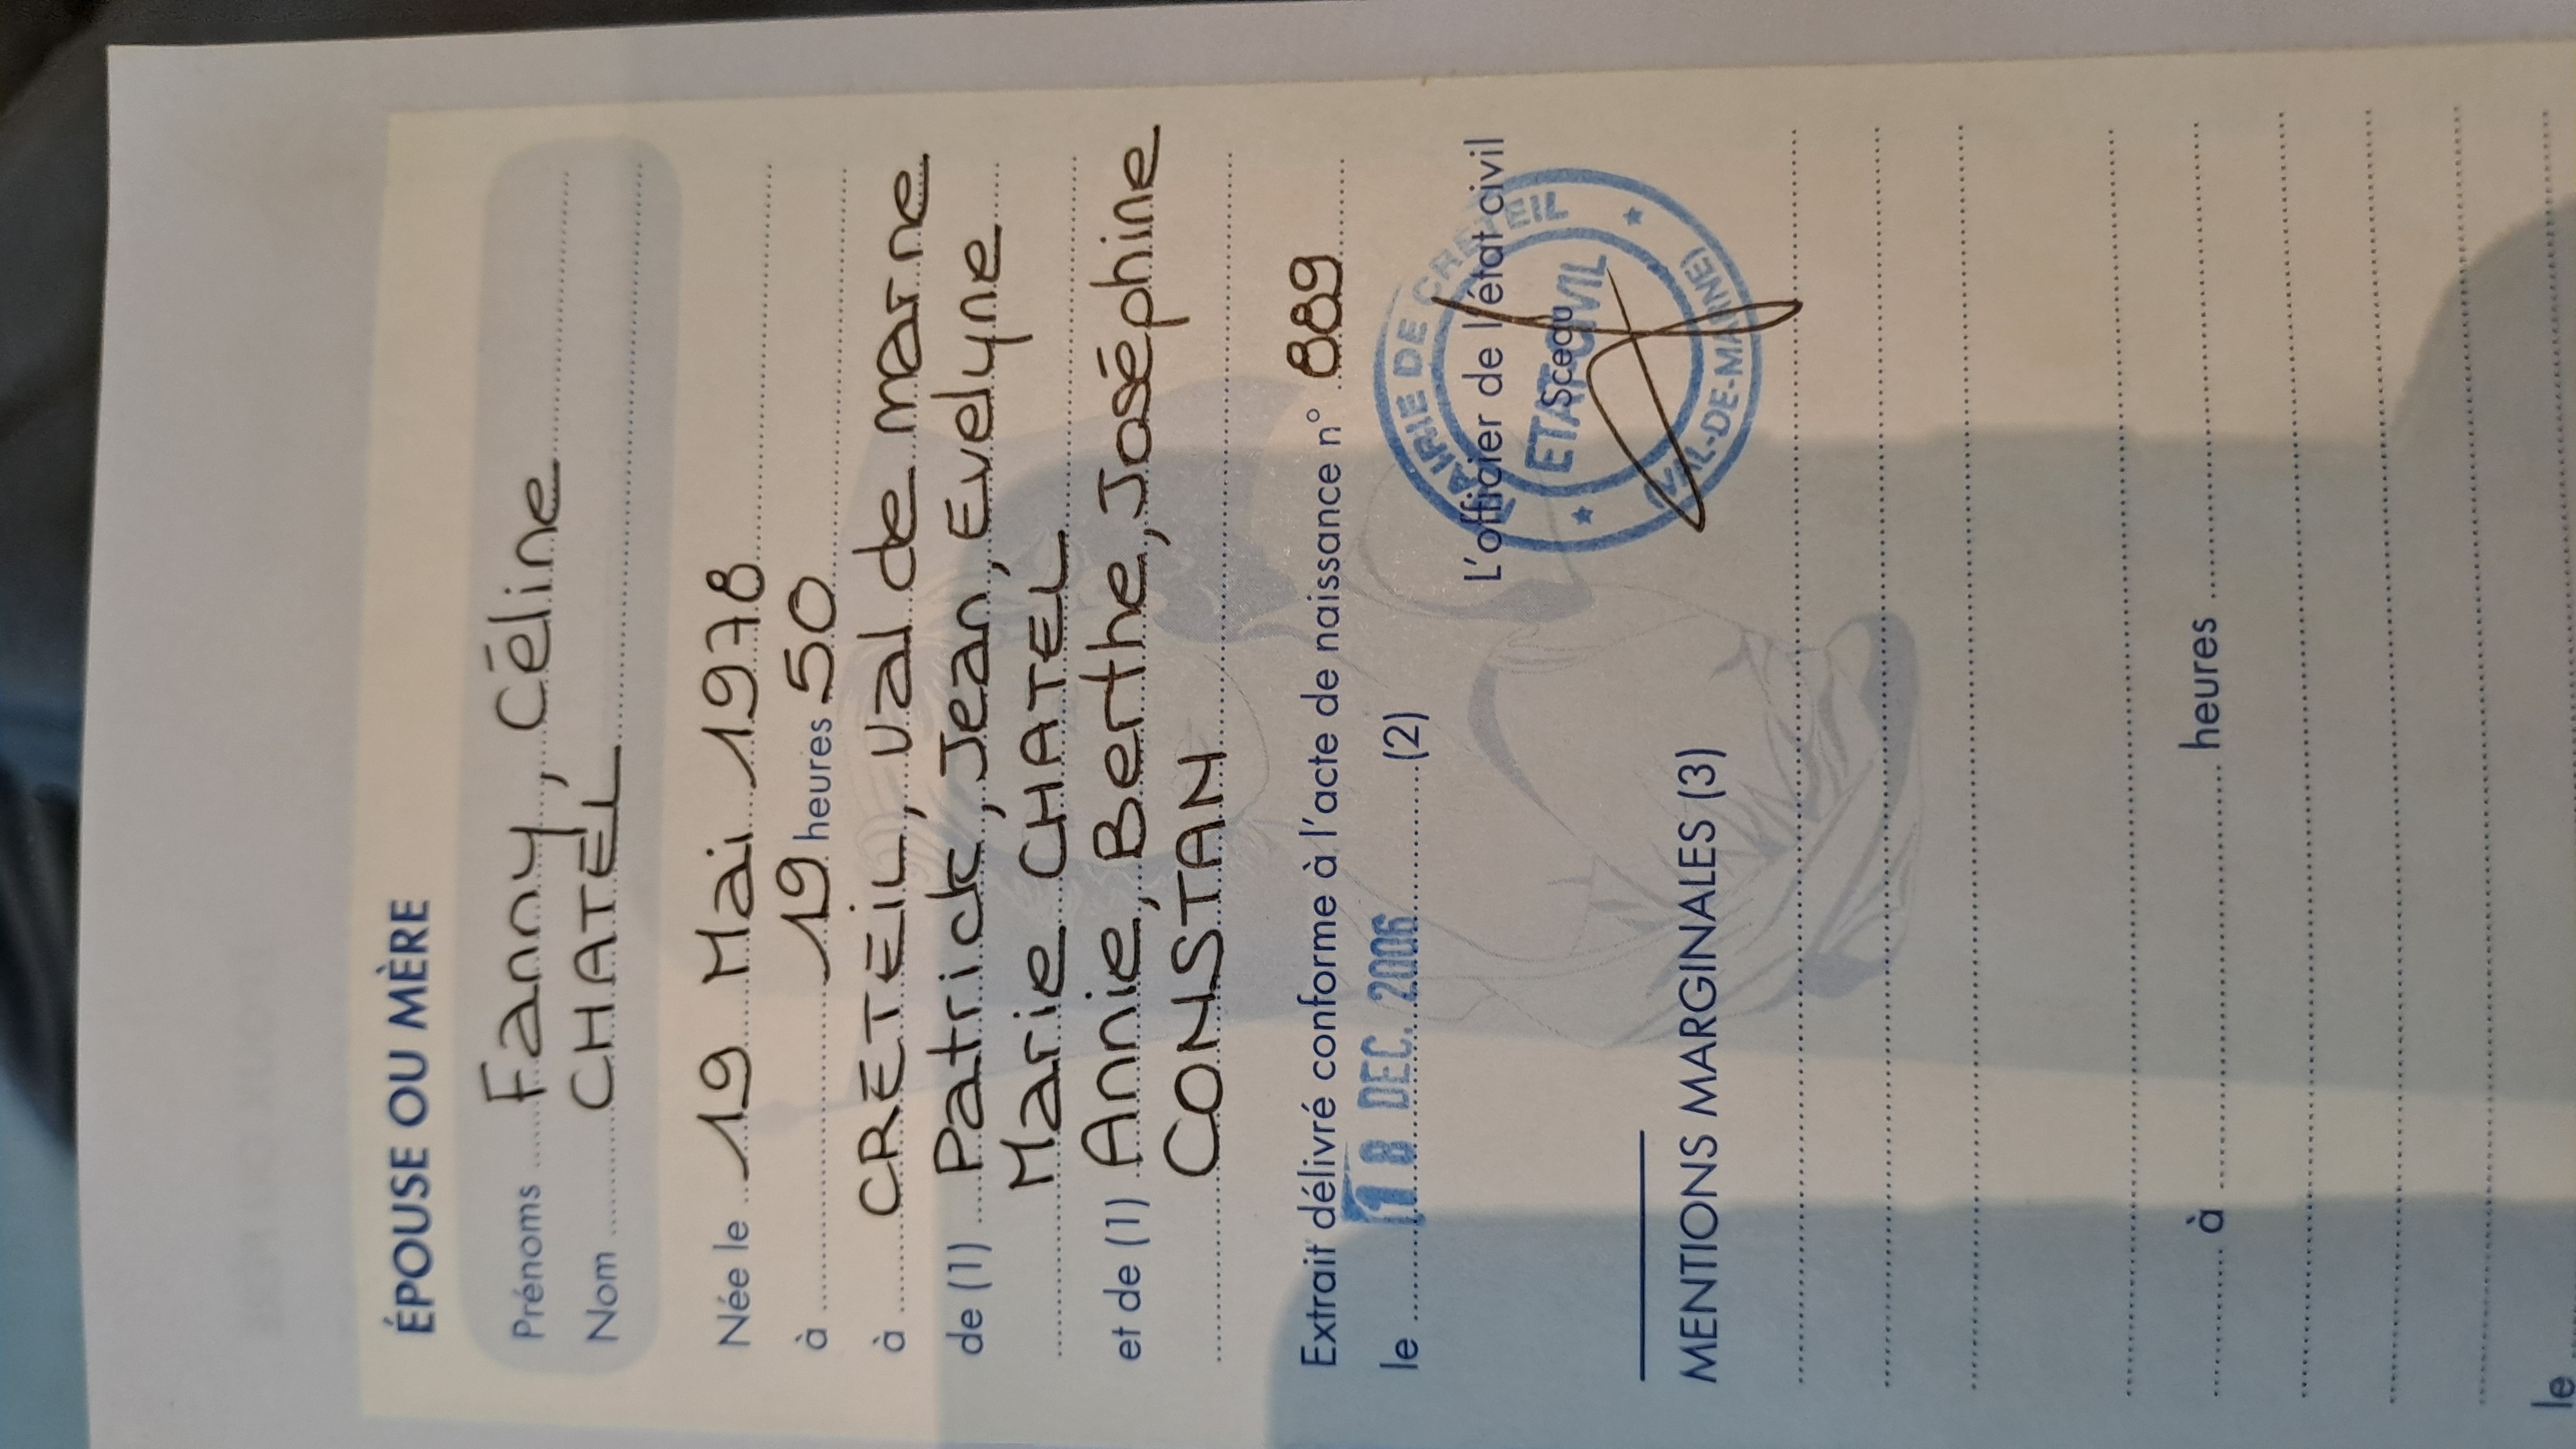 ÉPOUSE OU MÈRE
Prénoms Fanny, Céline
Nom CHATEL
Née le 19 Mai 1978
à 19 heures 50
à CRETEIL, val de marne
de (1) Patrick, Jean, Evelyne
Marie CHATEL
et de (1) Annie, Berthe, Joséphine
CONSTAN
Extrait délivré conforme à l'acte de naissance n° 889
le 18 DEC. 2006 (2)
L'officier de l'état civil
Sceau
MAIRIE DE CRETEIL
ETAT CIVIL
(VAL-DE-MARNE)
MENTIONS MARGINALES (3)
à heures
le